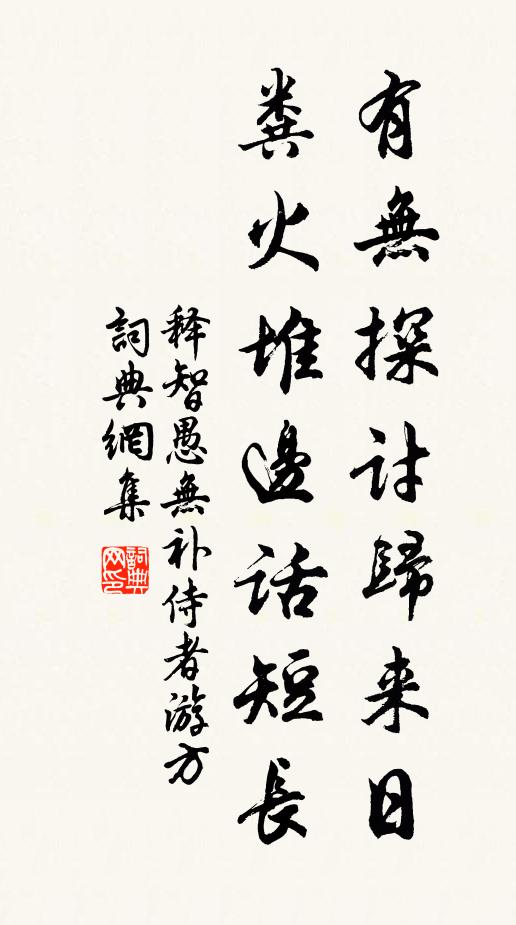 有無探討歸来日
糞火堆邊話短長
释智愚無补侍者游方
詞典網集
詞典网印